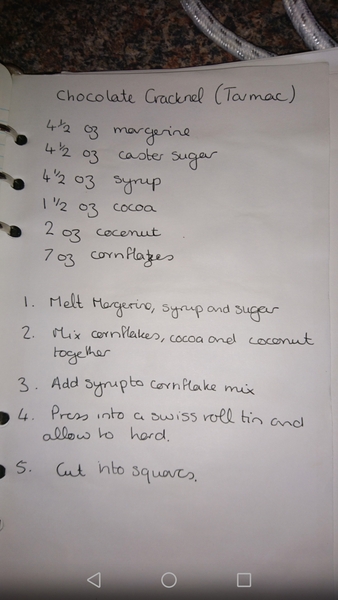 Chocolate Cracknel (Tarmac)
4 1/2 oz margerine
4 1/2 oz caster sugar
4 1/2 oz syrup
1 1/2 oz cocoa
2 oz coconut
7 oz cornflakes
1. Melt Margerine, syrup and sugar
2. Mix cornflakes, cocoa and coconut
together
3. Add syrup to cornflake mix
4. Press into a swiss roll tin and
allow to hard.
5. Cut into squares.